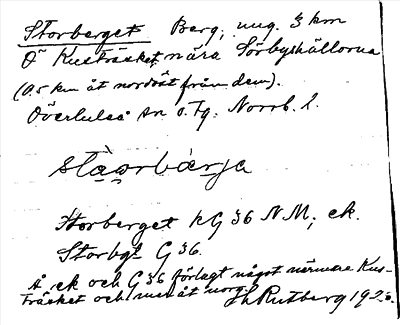 Storberget Berg, ung. 3 km
Ö Kusträsket nära Sörbyskällorna
(0,5 km åt nordöst från dem).
Överluleå sn o. Tg. Norrb. l.
stàorbàrja
Storberget kG 36 NM; ek.
Storbgt G 36.
Å ek och G 36 förlagt något närmare Kus-
träsket och mer åt norr.
Hj Rutberg 192